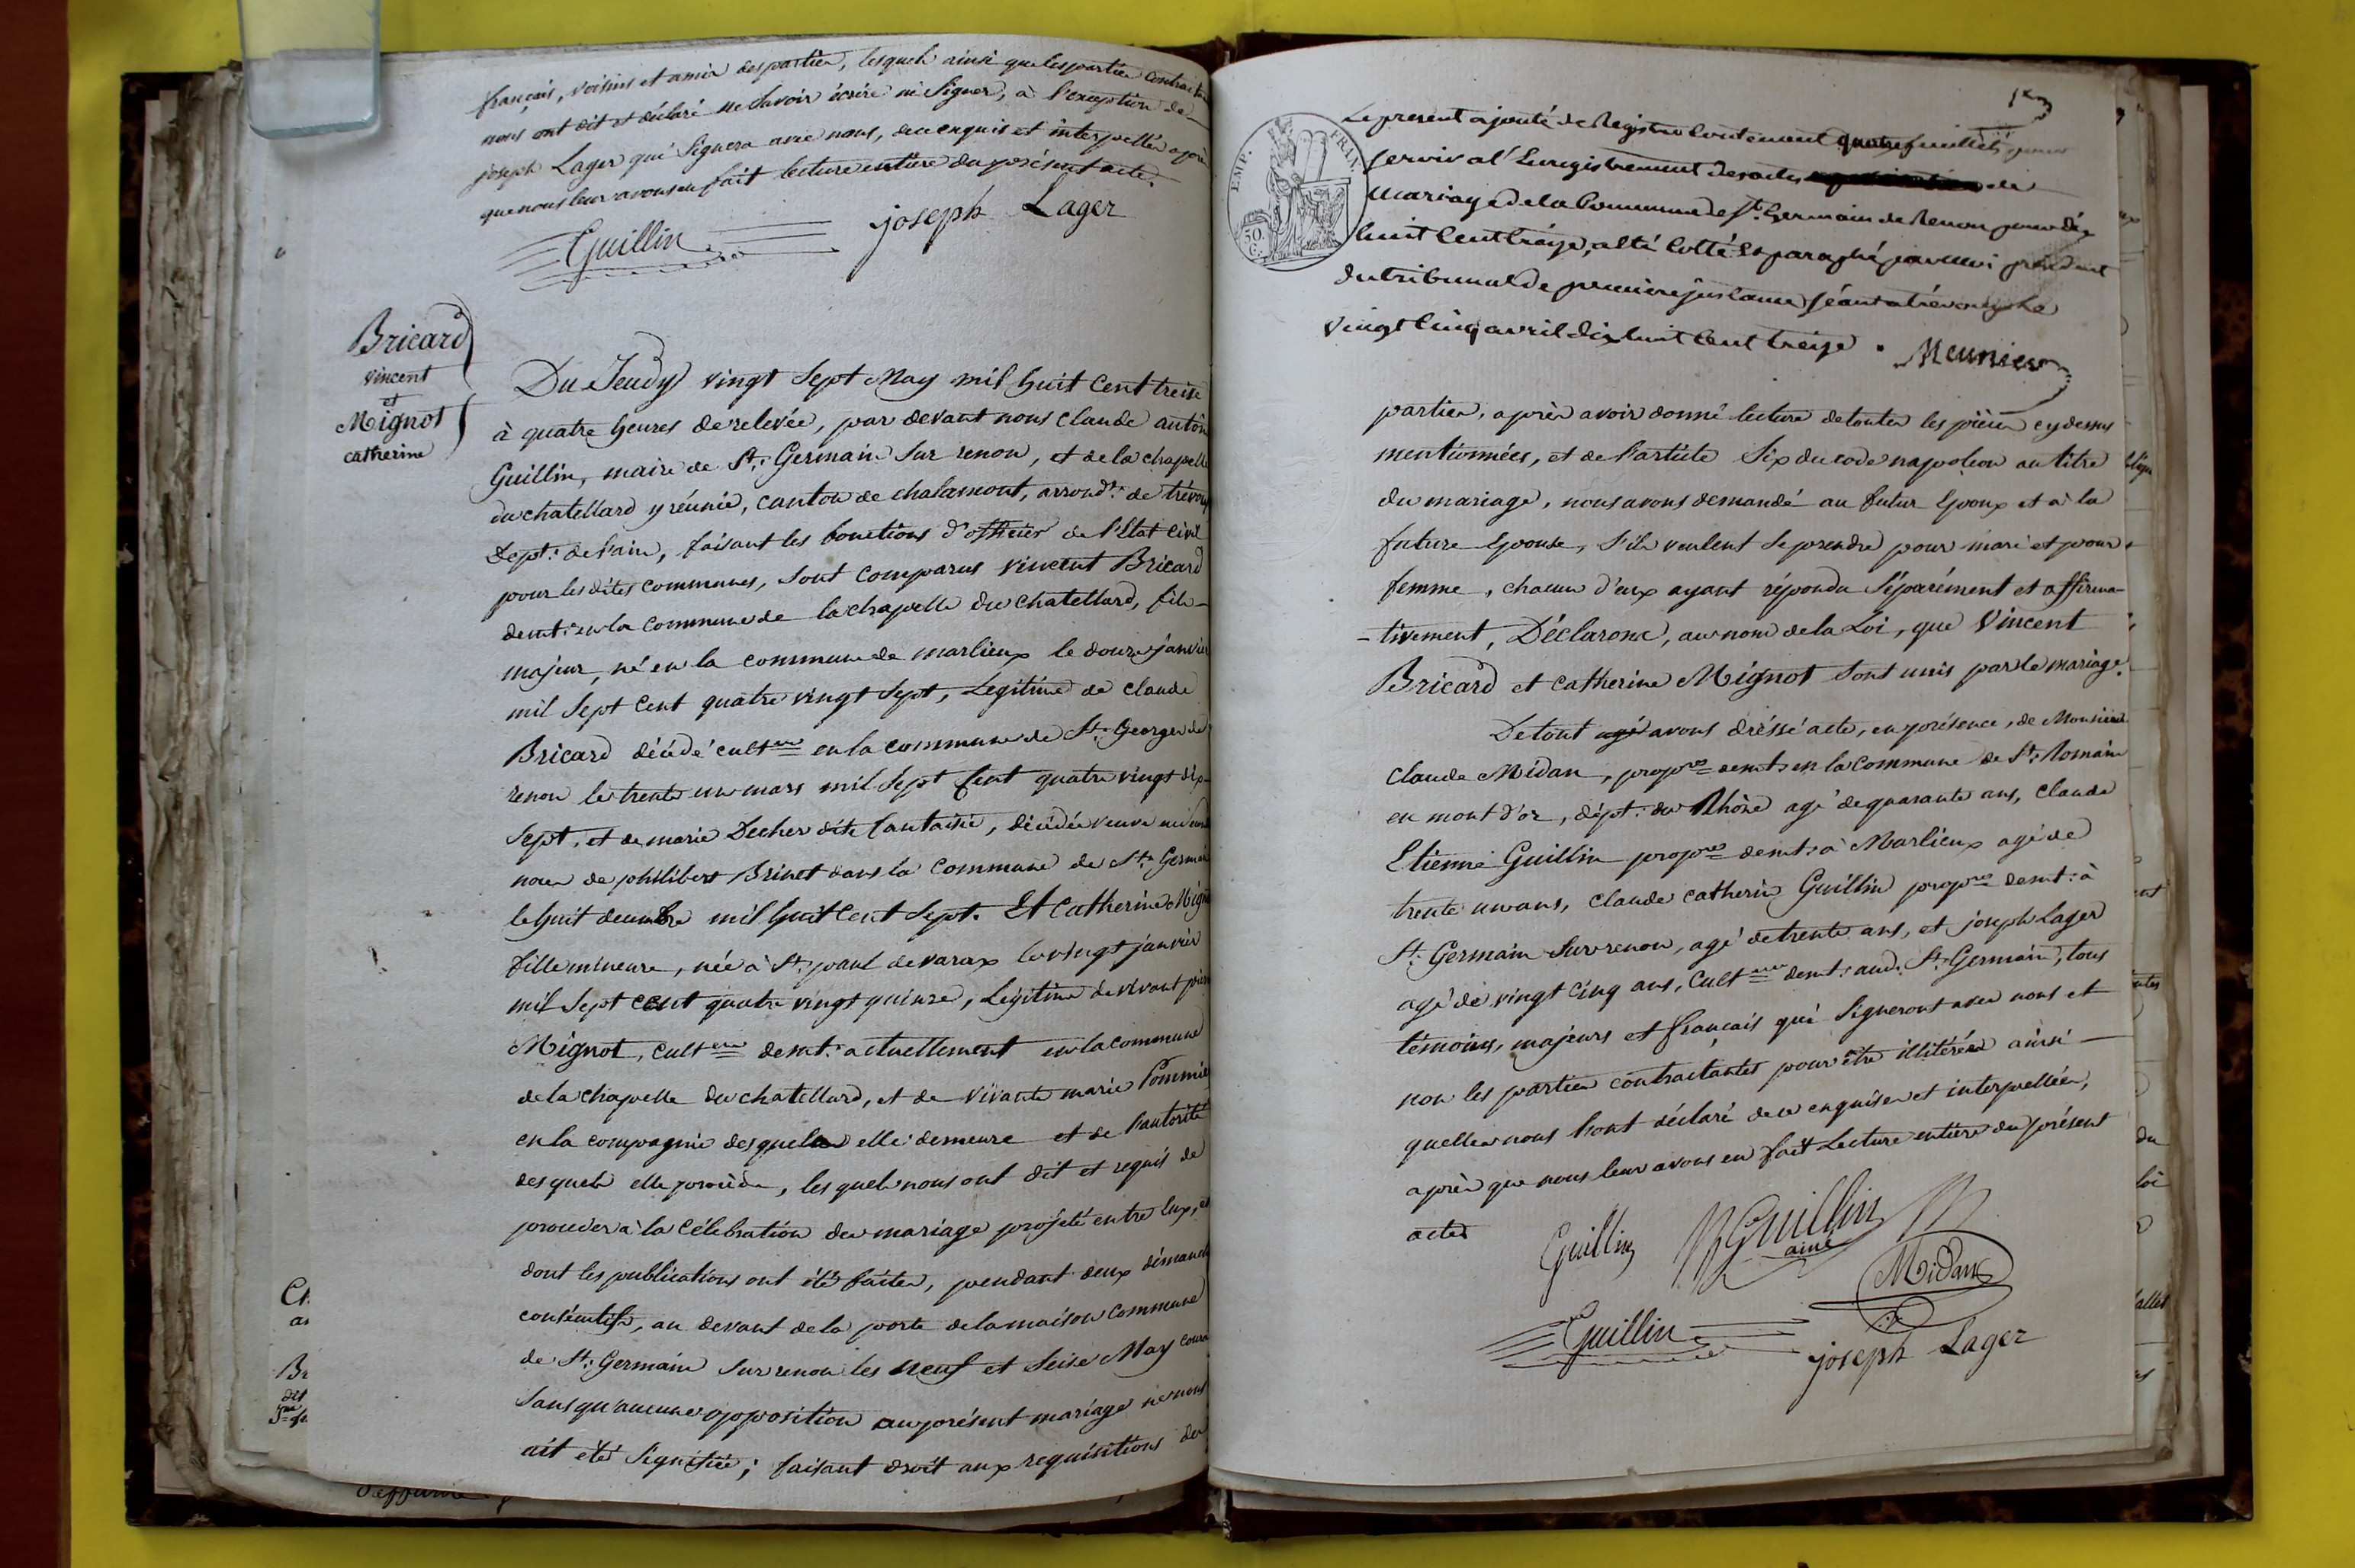 français, voisins et amis des parties, lesquels ainsi que les parties contractan
nous ont dit et déclaré ne savoir écrire ni signer, à l'exception de
joseph Lager qui signera avec nous, de ce enquis et interpellés après
que nous leur avons en fait lecture entière du présent acte.
Guillin joseph Lager
Bricard
vincent
et
Mignot
catherine
Du Jeudy vingt sept May mil huit Cent treise
à quatre heures de relevée, par devant nous Claude antoin
Guillin, maire de St. Germain sur renon, et de la chapelle
du chatellard y réunie, canton de chalamont, arrondt. de trévoux
Dept. de l'ain, faisant les fonctions d'officier de l'Etat Civil
pour les dites communes, sont comparus vincent Bricard
demt. en la commune de la chapelle du chatellard, fils
majeur, né en la commune de marlieux le douze janvier
mil sept cent quatre vingt sept, Légitime de claude
Bricard décédé cult.eur en la commune de St. George de
renon le trente un mars mil sept cent quatre vingt dix
sept, et de marie Decher dite fantaisie, décédée veuve en
noces de philibert Brinet dans la commune de St. Germain
le huit decembre mil huit Cent sept. Et Catherine Mignot
fille mineure, née à St. paul de varax le vingt janvier
mil sept cent quatre vingt quinze, Légitime de vivant pierre
Mignot, cult.eur demt. actuellement en la commune
de la chapelle du chatellard, et de vivante marie Pommier
en la compagnie desquels elle demeure et de l'autorité
desquels elle procède, lesquels nous ont dit et requis de
procéder à la Célébration du mariage projeté entre eux, et
dont les publications ont été faites, pendant deux dimanch
consécutifs, au devant de la porte de la maison commune
de St. Germain sur renon les neuf et seise May coura
sans qu'aucune opposition au présent mariage ne nous
ait été signifiée; faisant droit aux requisitions des
EMP. FRAN.
50. C.
1er
Le present ajouté de Registre Contenant quatre feuillets pour
servir a l'Enregistrement des actes de
mariage de la Commune de St. Germain de Renon pour dix
huit Cent treize, a été Cotté et paraphé par nous président
du tribunal de premiere jnstance séant a trévoux le
vingt Cinq avril dix huit Cent treize. Meunier
parties, après avoir donné lecture de toutes les pièces cy dessus
mentionnées, et de l'article six du code napoléon au titre
du mariage, nous avons demandé au futur Epoux et à la
future Epouse, s'ils veulent se prendre pour mari et pour
femme, chacun d'eux ayant répondu séparément et affirma-
-tivement, Déclarons, au nom de la Loi, que Vincent
Bricard et Catherine Mignot sont unis par le mariage.
De tout avons dréssé acte, en présence, de Monsieur
Claude Midan, propre. demt. en la commune de St. Romain
en mont d'or, dépt. du Rhône agé de quarante ans, Claude
Etienne Guillin propre. demt. à Marlieux agé de
trente un ans, Claude Catherin Guillin propre. demt. à
St. Germain sur renon, agé de trente ans, et joseph Lager
agé de vingt cinq ans, Cult.eur demt. aud. St. Germain, tous
témoins, majeurs et français qui signeront avec nous et
non les parties contractantes pour être illitérées ainsi
quelles nous l'ont déclaré de ce enquises et interpellées,
après que nous leur avons en fait Lecture entière du présent
acte
Guillin Guillin
ainé
Midan
Guillin
joseph Lager